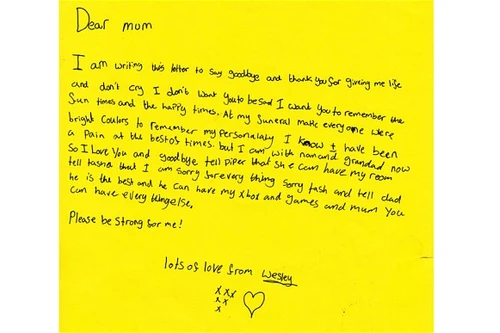 Dear mum
I am writing this letter to say goodbye and thank you for giveing me life
and don't cry I don't want you to be sad I want you to remember the
Sun times and the happy times. At my funeral make every one were
bright Coulors to remember my personalaty I know I have been
a pain at the best of times. but I am with nan and grandad now
So I Love You and goodbye tell piper that she can have my room
tell tasha that I am sorry for every thing sorry tash and tell dad
he is the best and he can have my xbox and games and mum you
can have every thing else.
Please be Strong for me!
lots of love from Wesley
x x x
x x
x